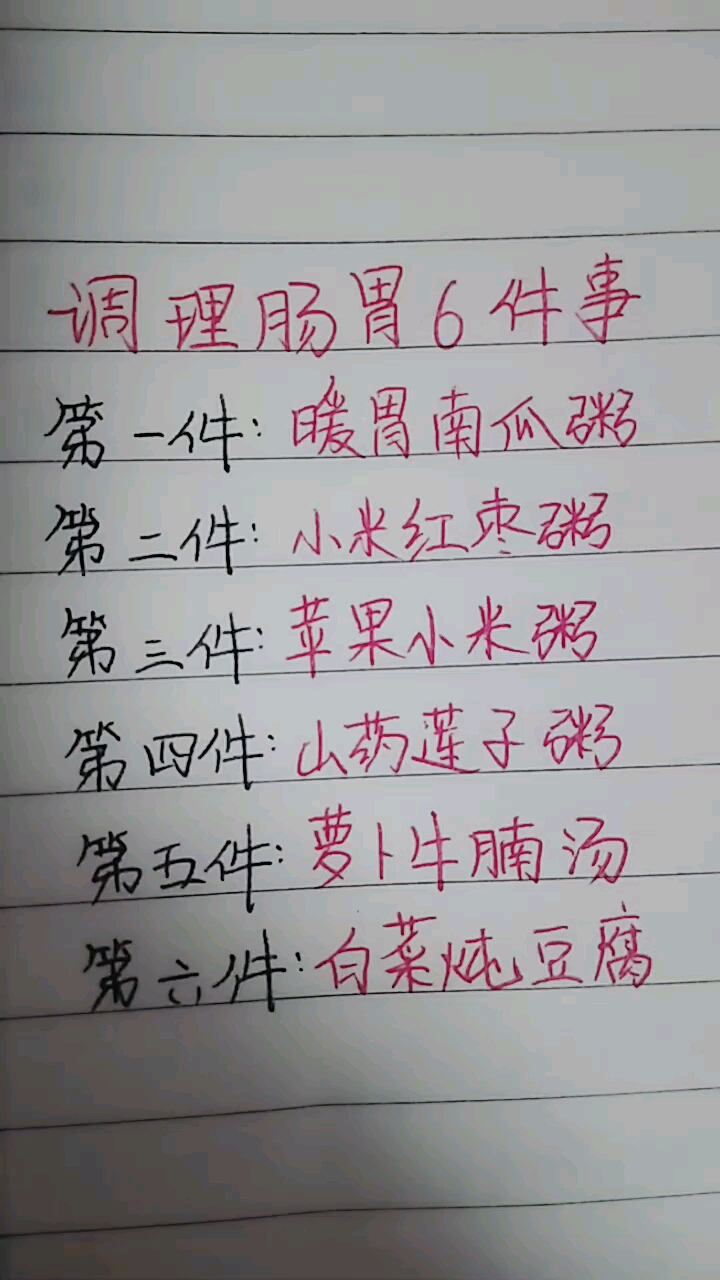 调理肠胃6件事
第一件:暖胃南瓜粥
第二件:小米红枣粥
第三件:苹果小米粥
第四件:山药莲子粥
第五件:萝卜牛腩汤
第六件:白菜炖豆腐